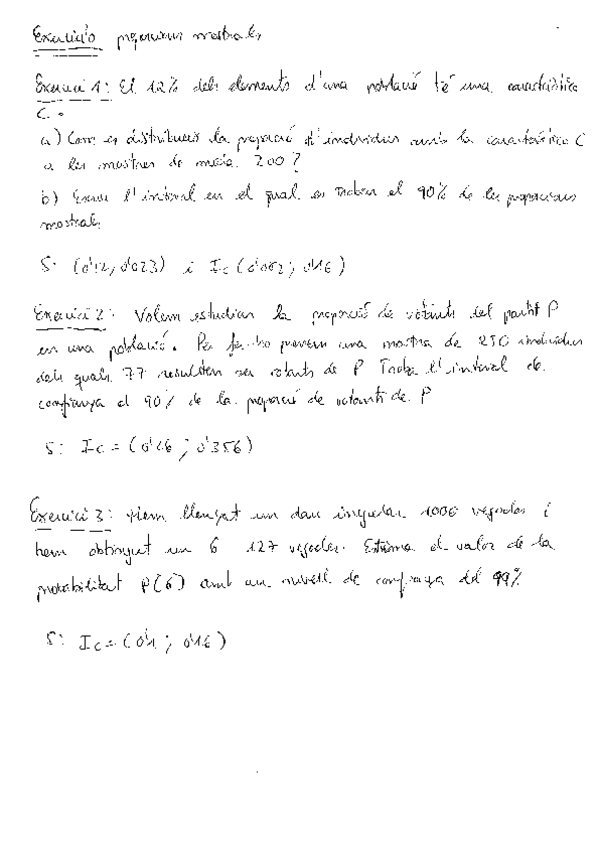 Exercicis proporcions mostrals
Exercici 1: El 12% dels elements d'una població té una característica
C.
a) Com es distribueix la proporció d'individus amb la característica C
a les mostres de mida 200?
b) l'interval en el qual es troben el 90% de les proporcions
mostrals
S: (0'12, 0'023) i Ic (0'082; 0'16)
Exercici 2: Volem estudiar la proporció de votants del partit P
en una població. Per fer-ho prenem una mostra de 250 individus
dels quals 77 resulten ser votants de P Troba l'interval de
confiança al 90% de la proporció de votants de P
S: Ic = (0'26; 0'356)
Exercici 3: Hem llençat un dau irregular 1000 vegades i
hem obtingut un 6 127 vegades. Estima el valor de la
probabilitat P(6) amb un nivell de confiança del 99%
S: Ic = (0'1; 0'16)